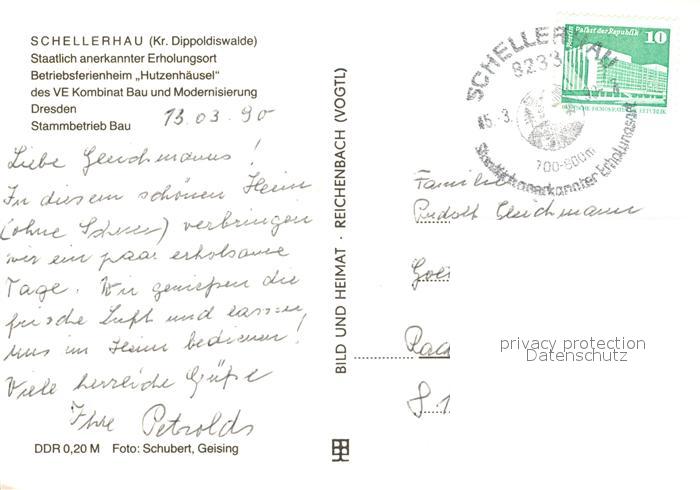 SCHELLERHAU (Kr. Dippoldiswalde)
Staatlich anerkannter Erholungsort
Betriebsferienheim „Hutzenhäusel"
des VE Kombinat Bau und Modernisierung
Dresden
Stammbetrieb Bau
13.03.90
Liebe Gleichmanns!
In diesem schönen Heim
(ohne Schnee) verbringen
wir ein paar erholsame
Tage. Wir genießen die
frische Luft und lassen
uns im Heim bedienen!
Viele herzliche Grüße
Ihre Petzolds
DDR 0,20 M Foto: Schubert, Geising
BILD UND HEIMAT · REICHENBACH (VOGTL)
SCHELLERHAU
8233
700-800m
Staatlich anerkannter Erholungsort
Berlin, Palast der Republik
10
DEUTSCHE DEMOKRATISCHE REPUBLIK
Familie
Rudolf Gleichmann
privacy protection
Datenschutz